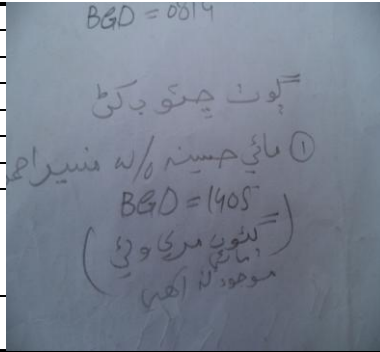 BGD = 0814
ڳوٺ چتو بکڻ
① مائي حسينہ W/o منير احمد
BGD = 1405
(گنوب مري وئي
مائي
موجود نہ آهي)